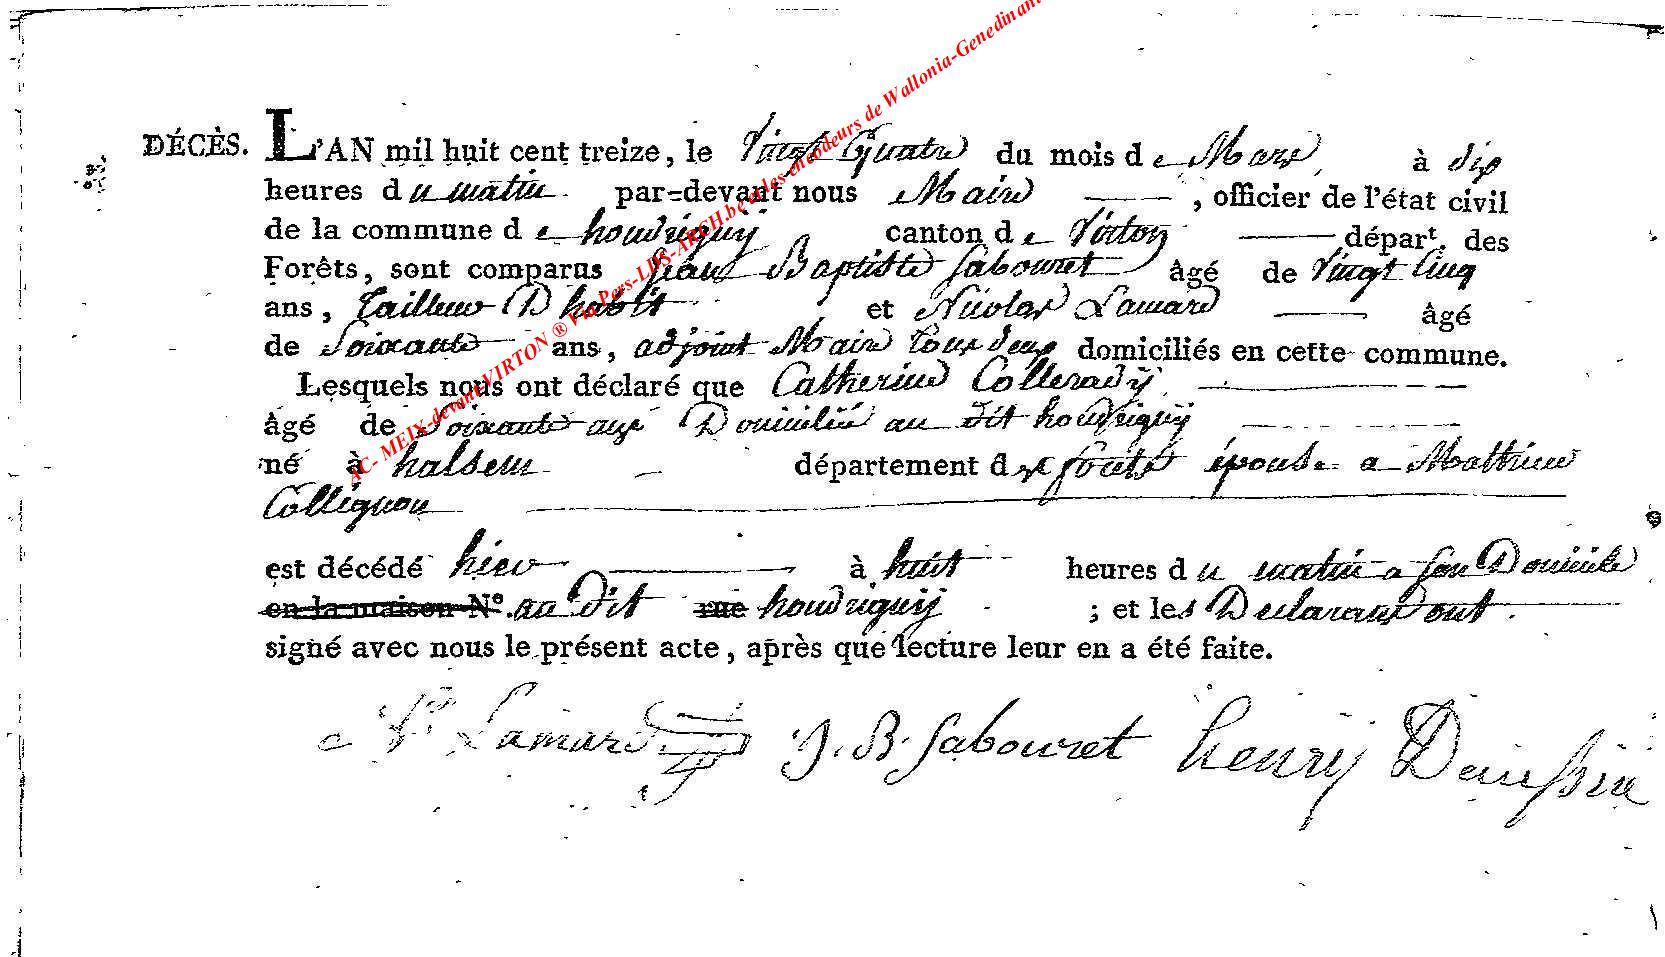 AC- MEIX-devant-VIRTON ® Via Pers-LDS-ARCH.be et les encodeurs de Wallonia-Genedinant
DÉCÈS. L'AN mil huit cent treize, le Vingt Quatre du mois de Mars à dix
heures du matin par-devant nous Maire , officier de l'état civil
de la commune de houdriguÿ canton de Virton départ. des
Forêts, sont comparus Jean Baptiste Sabouret âgé de Vingt Cinq
ans, Tailleur D habit et Nicolas Lamard âgé
de Soixante ans, adjoint Maire tous deux domiciliés en cette commune.
Lesquels nous ont déclaré que Catherine
âgé de Soixante ans Domiciliée au dit houdriguÿ
né à halsem département des forêts épouse a Mathieu
Collignon
est décédé hier à huit heures du matin a son Domicile
en la maison N°. au dit rue houdriguÿ ; et les Declarans ont
signé avec nous le présent acte, après que lecture leur en a été faite.
Ns Lamard J. B. Sabouret henrÿ